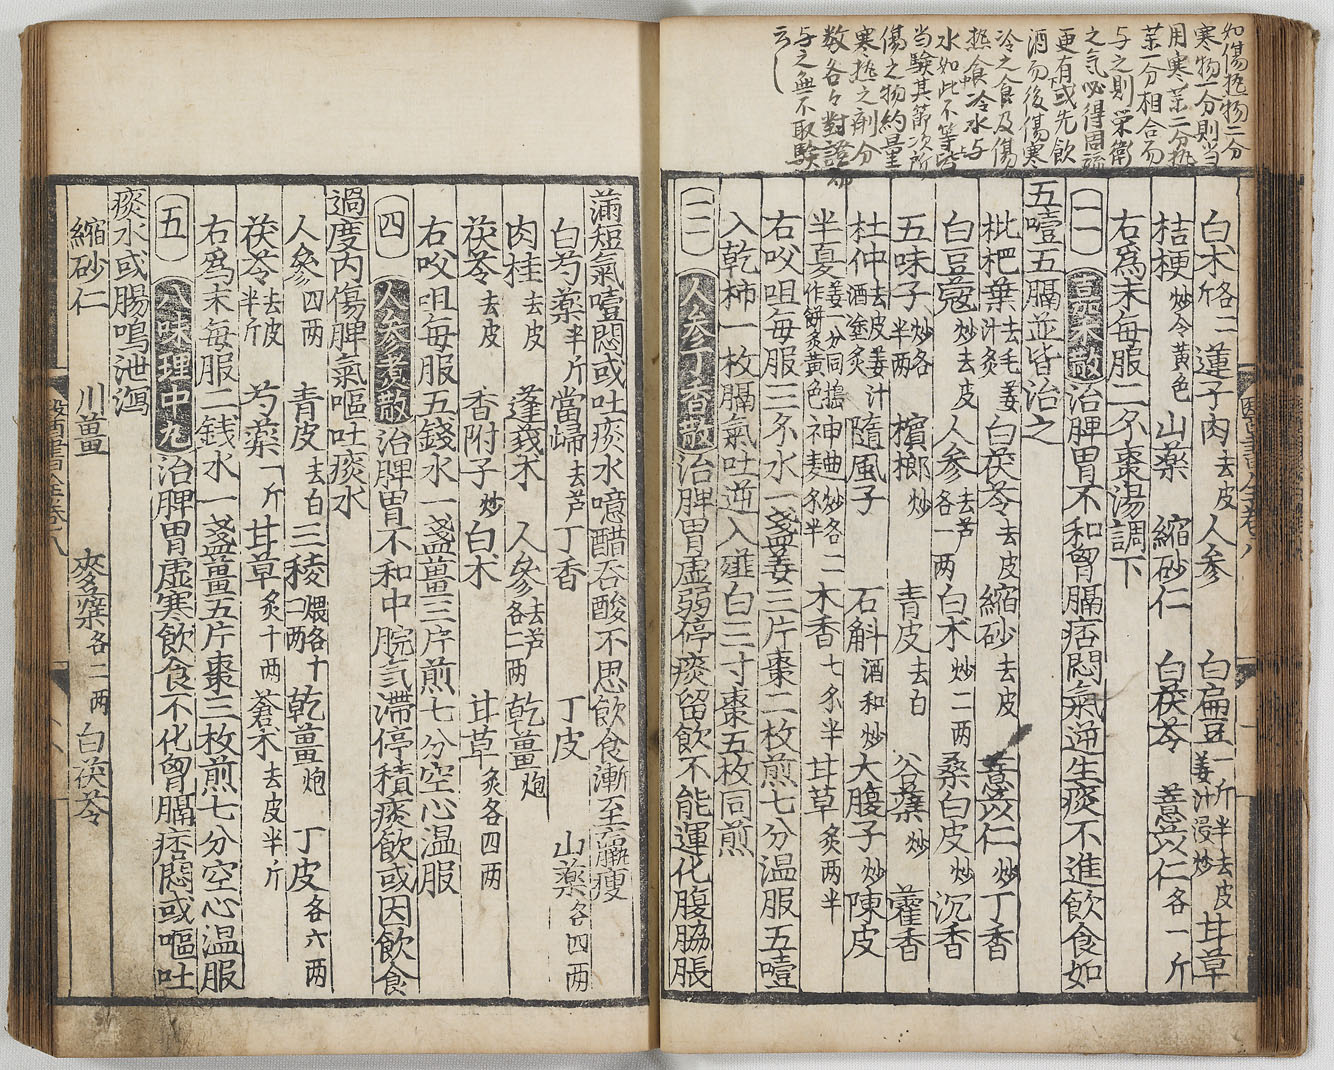 如傷熱物二分
寒物一分則当
用寒薬二分熱
薬一分相合而
与之則栄衛
之気必得周流
更有或先飲
酒而後傷寒
冷之食及傷
熱食冷水与
水如此不等皆
当験其節次所
傷之物約量
寒熱之剤分
数各々対證
与之無不取験
云
白朮各二 蓮子肉去皮 人参 白扁豆一斤半去皮姜汁浸炒 甘草
桔梗炒令黄色 山薬 縮砂仁 白茯苓 薏苡仁各一斤
右為末每服二分棗湯調下
(一) 豆蔲散治脾胃不和胷膈痞悶氣逆生痰不進飲食如
五噎五膈並皆治之
枇杷葉去毛姜汁炙 白茯苓去皮 縮砂去皮 薏苡仁炒 丁香
白豆蔻炒去皮 人参去芦各一両 白朮炒二両 桑白皮炒 沉香
五味子炒各半両 檳榔炒 青皮去白 谷蘗炒 藿香
杜仲去皮姜汁酒塗炙 隨風子 石斛酒和炒 大腹子炒 陳皮
半夏姜一分同擣作餅炙黄色 神曲炒各二分半 木香七分半 甘草炙両半
右㕮咀每服三分水一盞姜三片棗二枚煎七分温服五噎
入乾柿一枚膈氣吐逆入薤白三寸棗五枚同煎
(二) 人参丁香散治脾胃虚弱停痰留飲不能運化腹脇脹
滿短氣噎悶或吐痰水噫醋吞酸不思飲食漸至羸瘦
白芍薬半斤 當歸去芦 丁香 丁皮 山薬各四両
肉桂去皮 蓬莪朮 人参去芦各二両 乾薑炮
茯苓去皮 香附子炒 白朮 甘草炙各四両
右㕮咀每服五錢水一盞薑三片煎七分空心温服
(四) 人参煮散治脾胃不和中脘氣滯停積痰飲或因飲食
過度內傷脾氣嘔吐痰水
人參四両 青皮去白 三稜煨各十二両 乾薑炮 丁皮各六両
茯苓去皮半斤 芍薬一斤 甘草炙十両 蒼朮去皮半斤
右為末每服二錢水一盞薑五片棗三枚煎七分空心温服
(五) 八味理中丸治脾胃虚寒飲食不化胷膈痞悶或嘔吐
痰水或腸鳴泄瀉
縮砂仁 川薑 麥蘗各二両 白茯苓